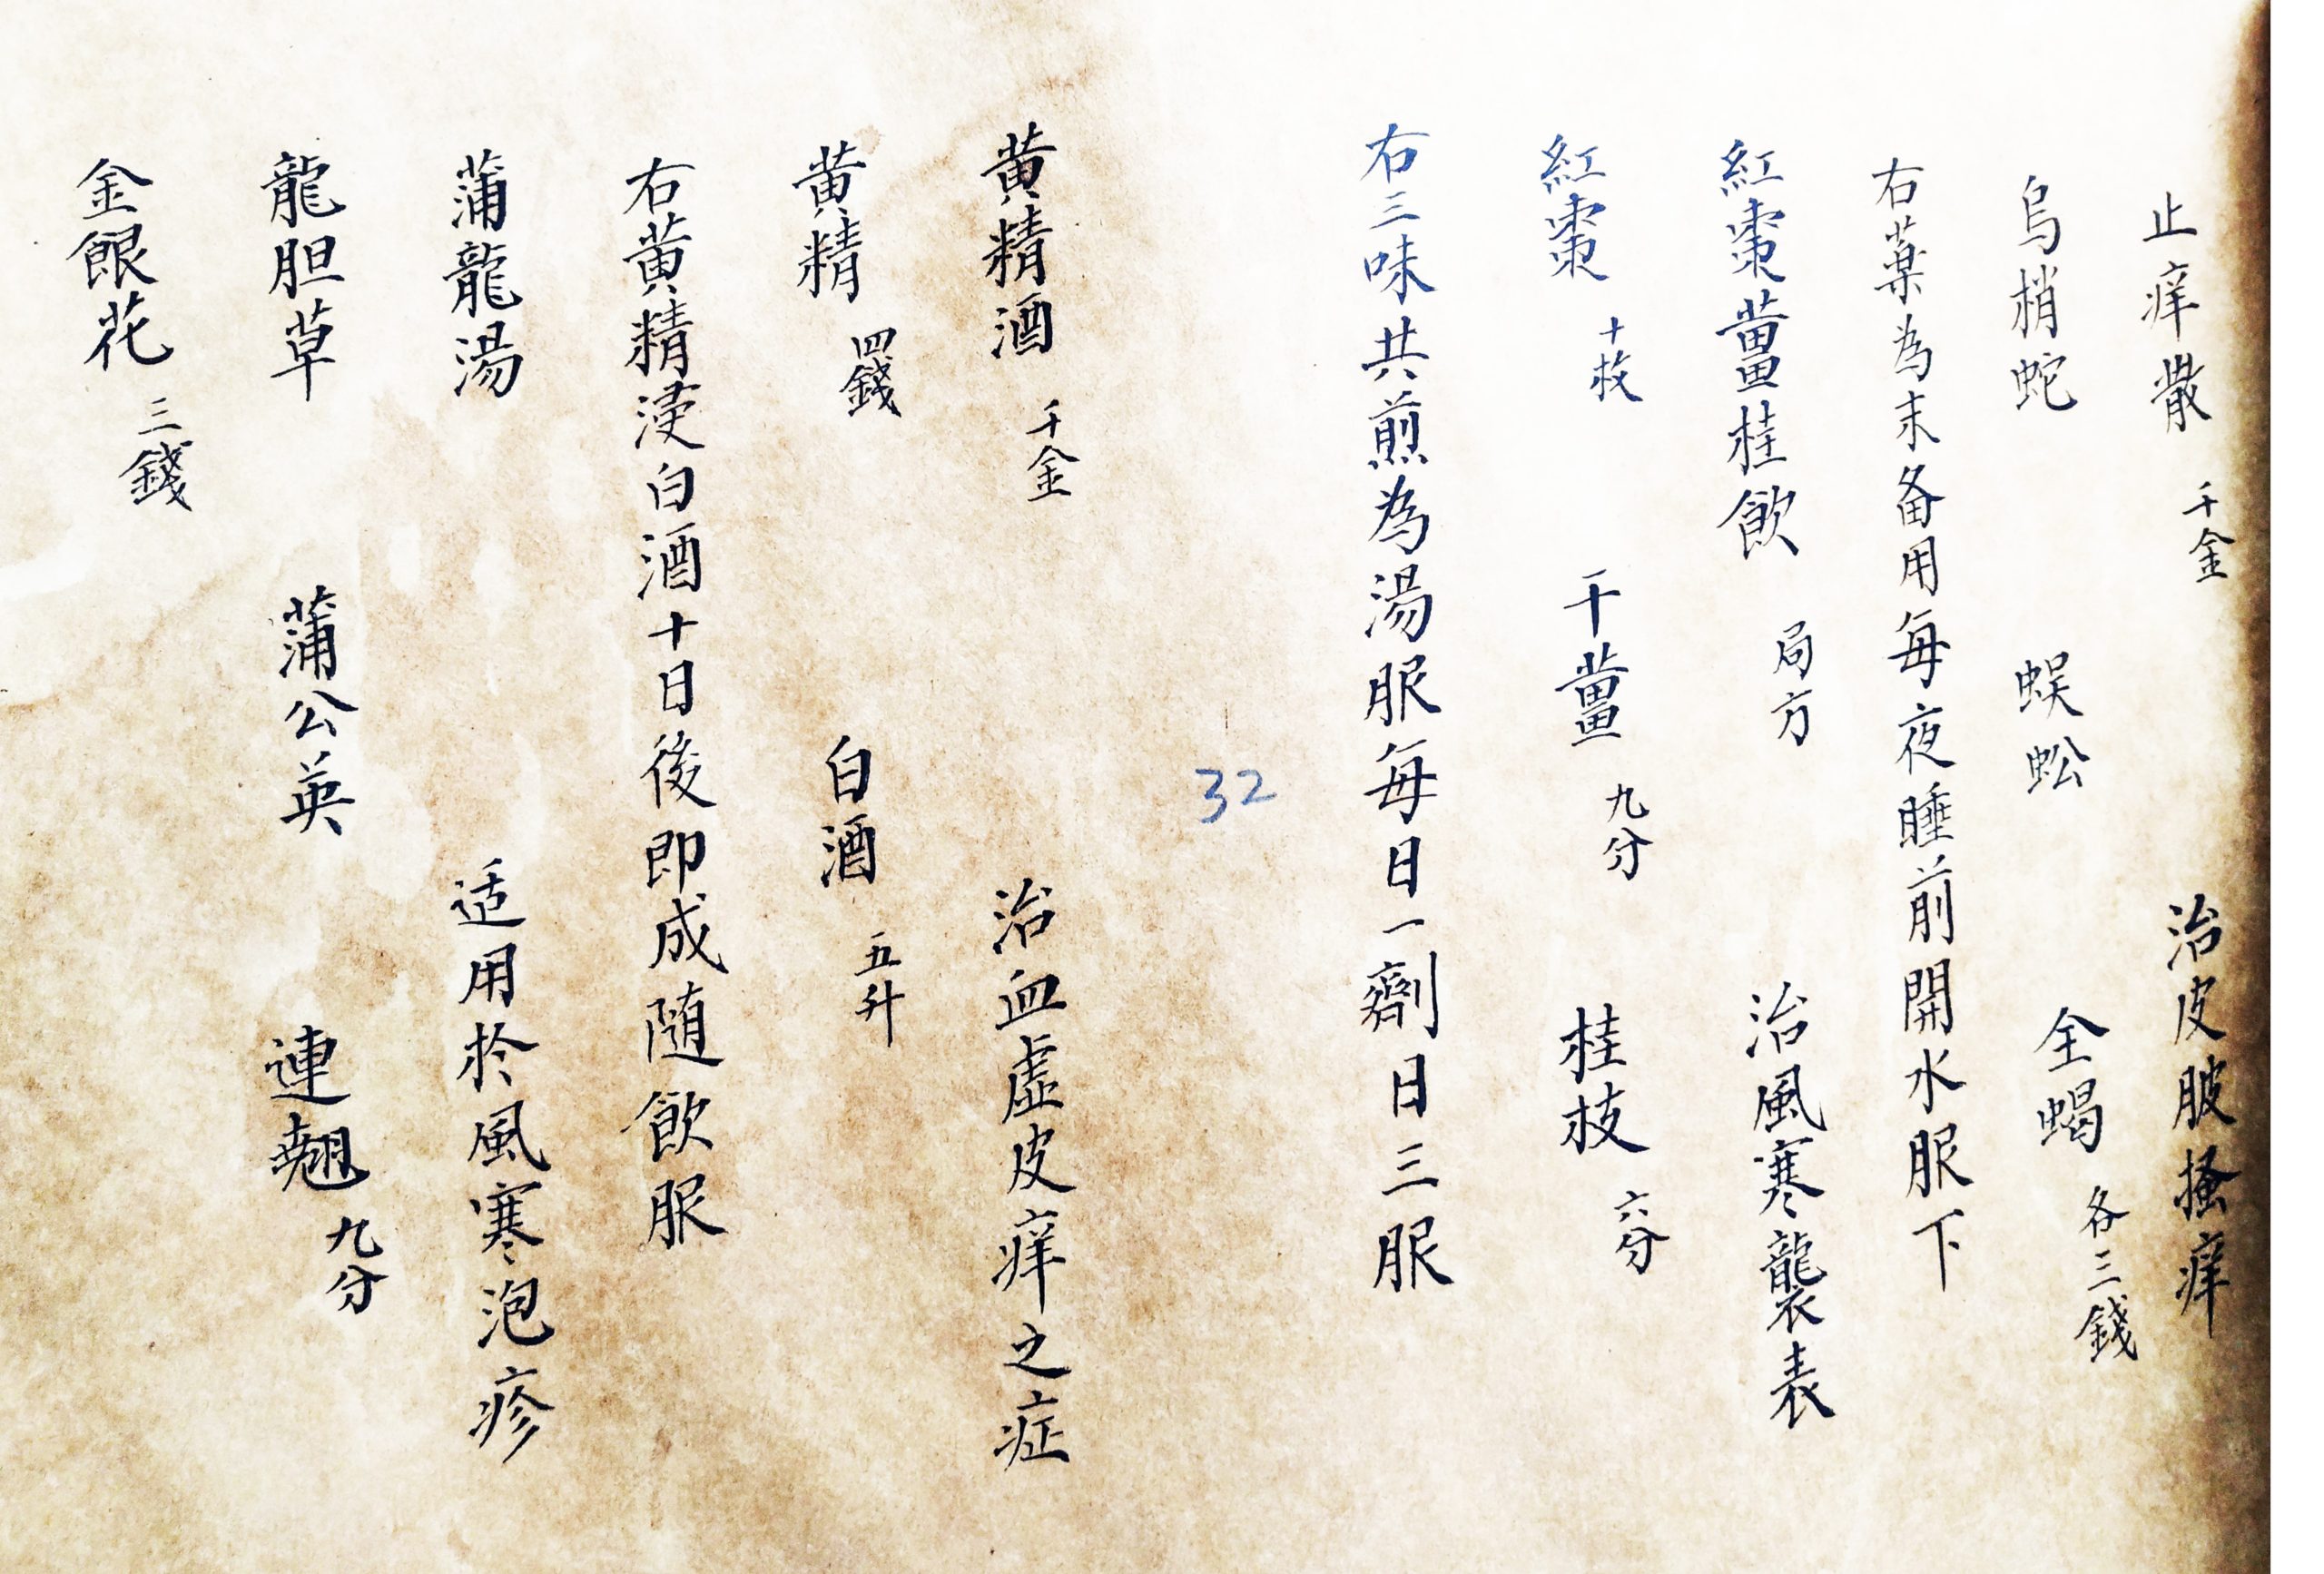 止痒散 千金 治皮肤搔痒
烏梢蛇 蜈蚣 全蝎 各三錢
右薬為末备用每夜睡前開水服下
紅棗薑桂飲 局方 治風寒襲表
紅棗 十枚 干薑 九分 桂枝 六分
右三味共煎為湯服每日一劑日三服
32
黄精酒 千金 治血虛皮痒之症
黄精 四錢 白酒 五升
右黄精浸白酒十日後即成随飲服
蒲龍湯 适用於風寒泡疹
龍胆草 蒲公英 連翹 九分
金銀花 三錢